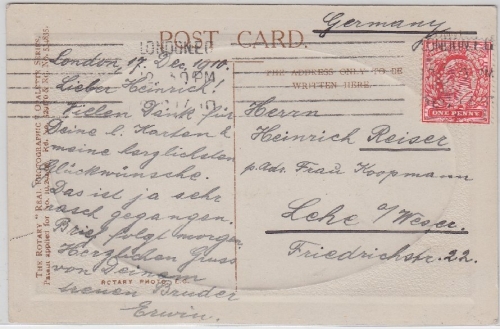 Germany
POST CARD.
THE ADDRESS ONLY TO BE
WRITTEN HERE.
London, 17. Dec. 1910.
Lieber Heinrich!
Vielen Dank für
Deine l. Karten &
meine herzlichsten
Glückwünsche.
Das ist ja sehr
rasch gegangen.
Brief folgt morgen.
Herzlichen Gruss
von Deinem
treuen Bruder
Erwin.
Herrn
Heinrich Reiser
p. Adr. Frau Koopmann
Lehe a/Weser.
Friedrichstr. 22.
THE ROTARY "REAL PHOTOGRAPHIC" OPALETTE SERIES.
ROTARY PHOTO, E.C.
LONDON E.C
PM
ONE PENNY